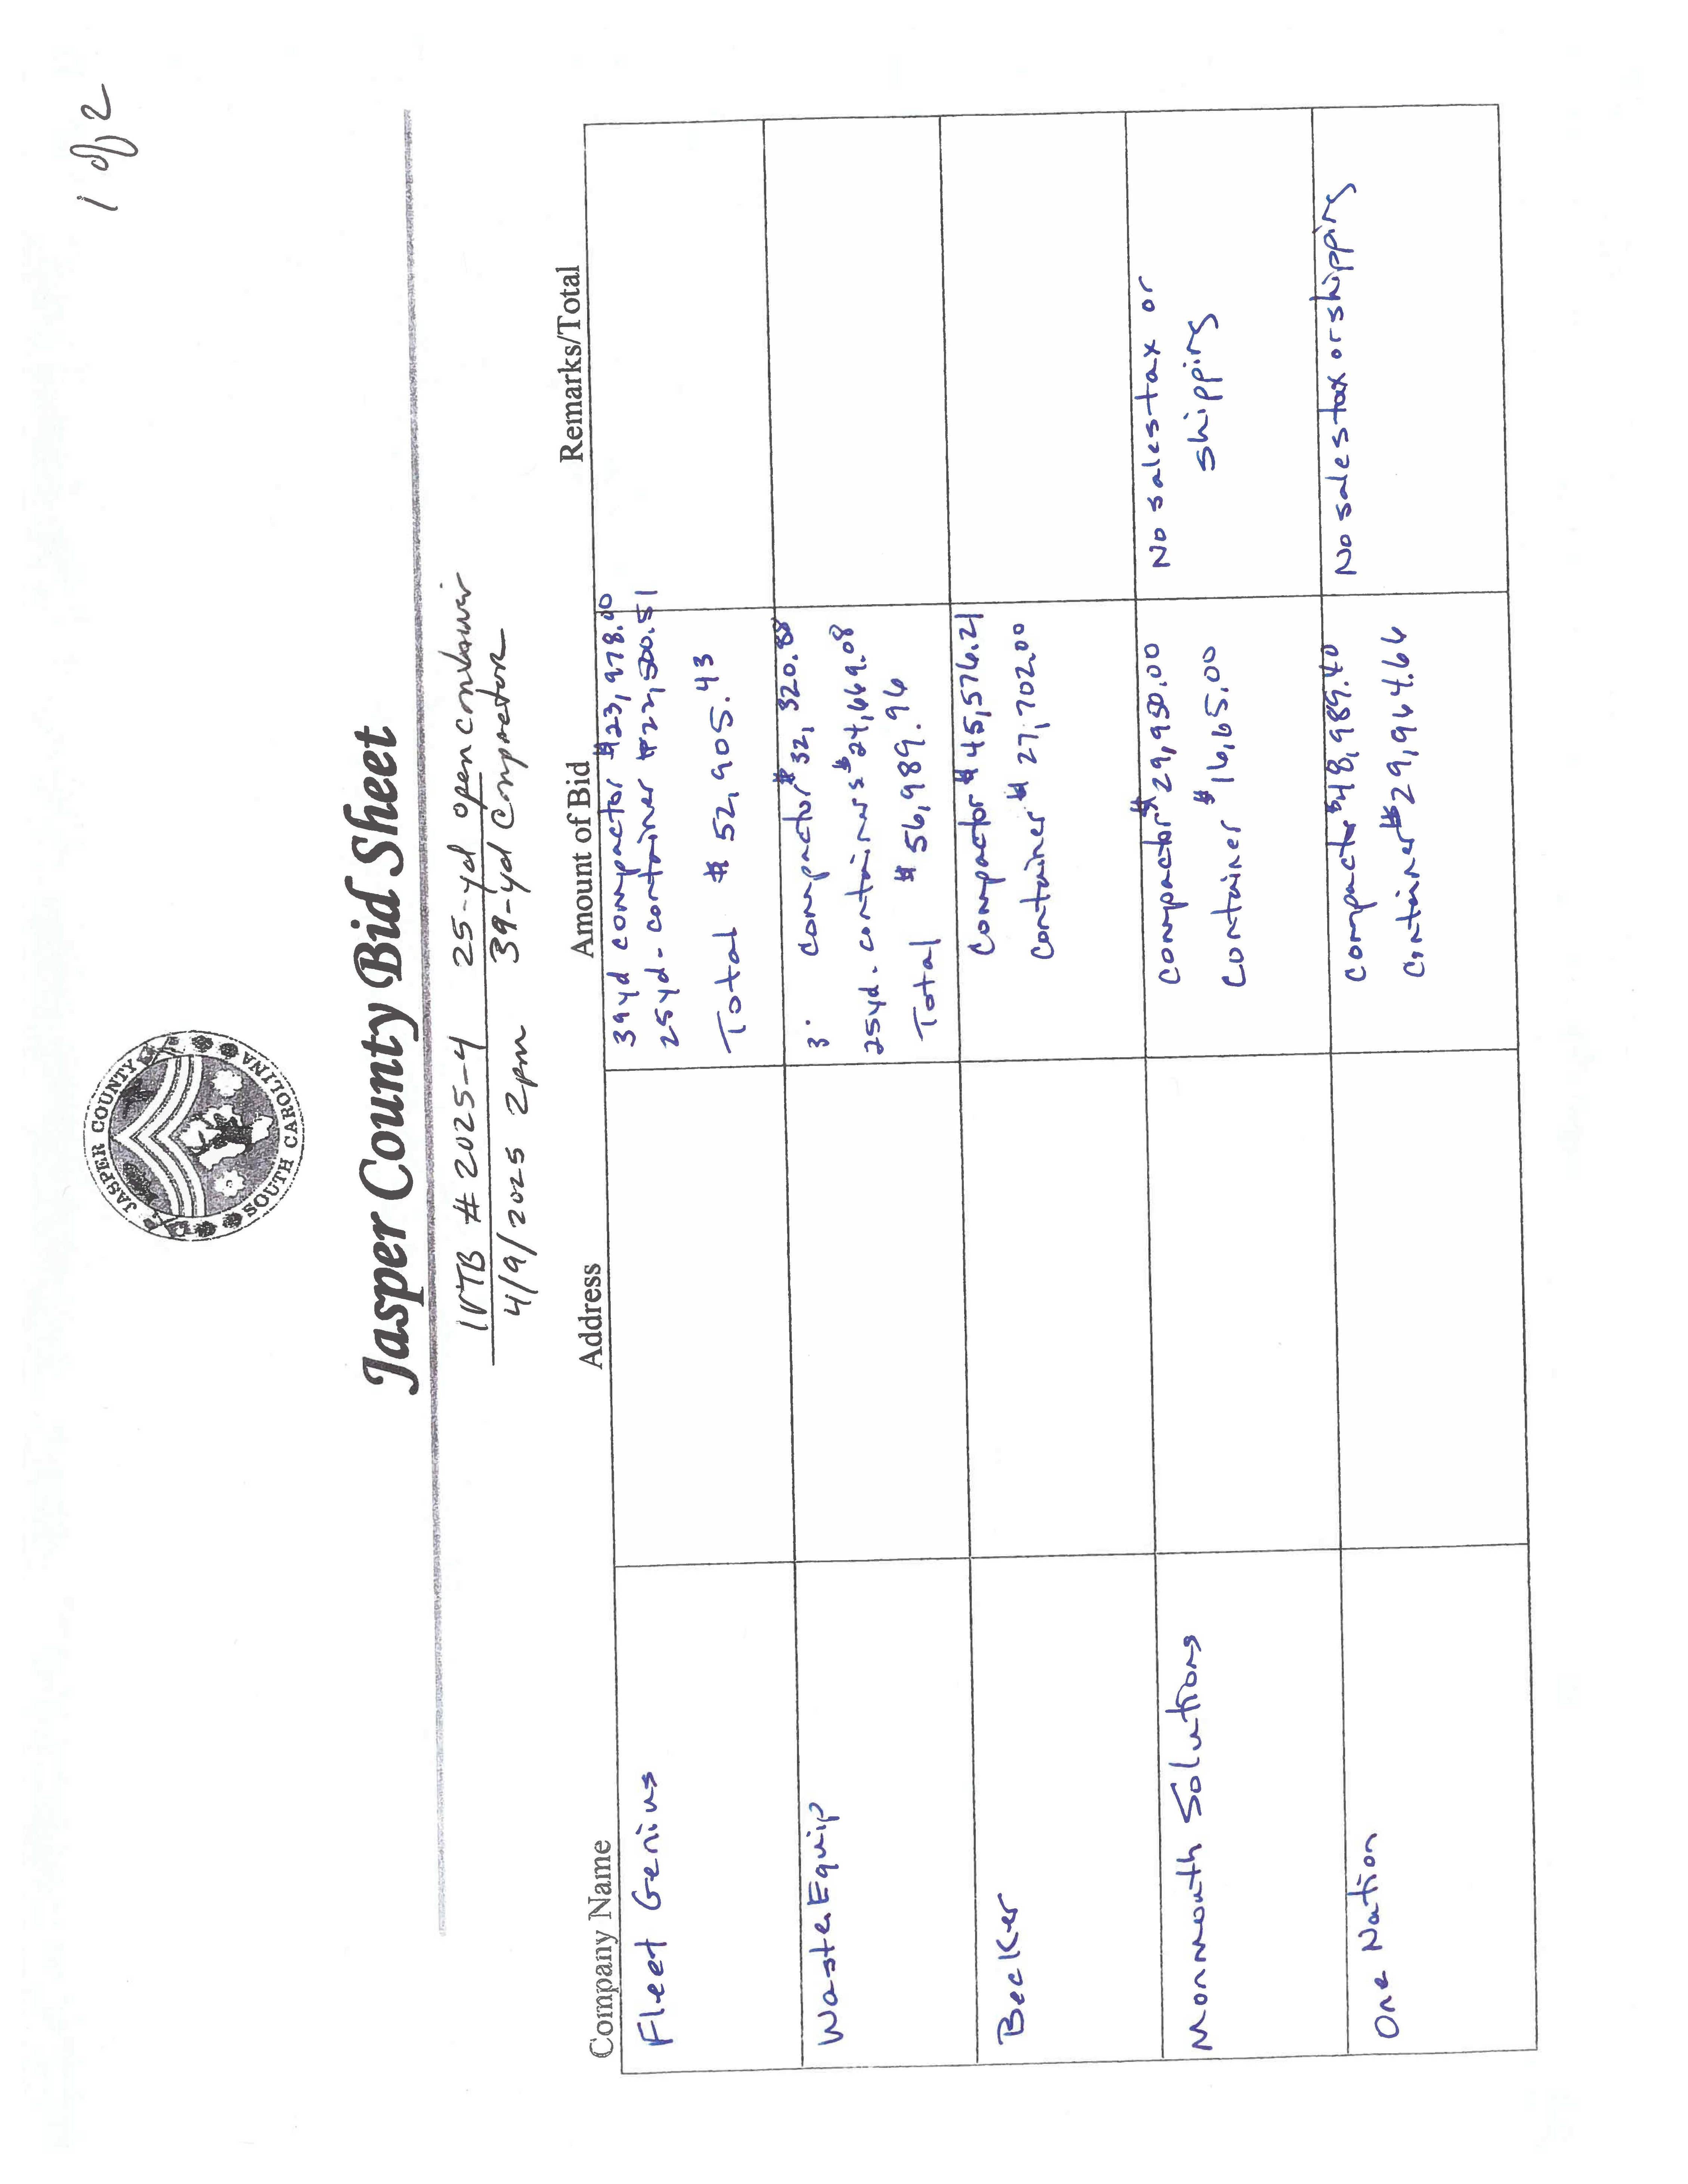 1 of 2
JASPER COUNTY
SOUTH CAROLINA
Jasper County Bid Sheet
IVTB # 2025-4 25-yd open container
4/9/2025 2pm 39-yd Compactor
Company Name Address Amount of Bid Remarks/Total
Fleet Genius
39yd compactor $23,978.00
25yd-container $22,500.51
Total $52,905.43
WasteEquip
3. compactor $32,320.88
25yd. containers $24,669.08
Total $56,989.96
Becker
Compactor $45,576.21
Container $27,702.00
Monmouth Solutions
Compactor $29,950.00
Container $16,165.00
No sales tax or
shipping
One Nation
Compactor $48,989.40
Container $29,964.66
No sales tax or shipping